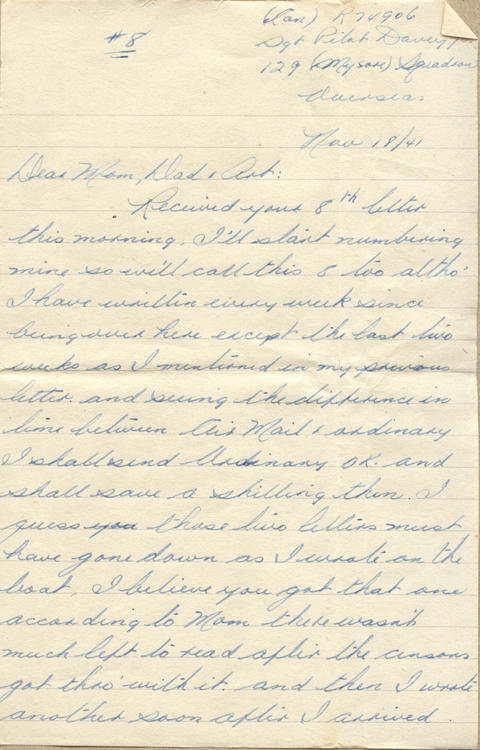 (Can) R74906
#8
Sgt Pilot Davey
129 (Mysore) Squadron
Overseas
Nov 18/41
Dear Mom, Dad & Art:
Received your 8th letter
this morning. I'll start numbering
mine so will call this 8 too altho'
I have written every week since
being over here except the last two
weeks as I mentioned in my previous
letter. and seeing the difference in
time between Air Mail & ordinary
I shall send Ordinary OK. and
shall save a shilling then. I
guess you those two letters must
have gone down as I wrote on the
boat, I believe you got that one
according to Mom there wasn't
much left to read after the censors
got thro' with it. and then I wrote
another soon after I arrived.